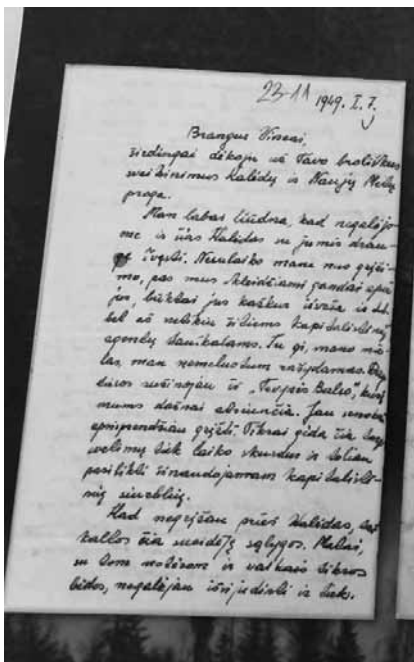 23-11 1949. I. 7.
Brangus Vincai,
širdingai dėkoju už Tavo broliškus
sveikinimus Kalėdų ir Naujų Metų
proga.
Man labai liūdna, kad negalėjo
me ir šias Kalėdas su jumis drau-
švęsti. Nesulaiko mane nuo grįži-
mo, pas mus skleidžiami gandai apie
jus, būktai jus kažkur išveža ir
bet aš netikiu šitiems kapitalistinių
agentų tauškalams. Tu gi, mano
las, man nemeluotum rašydamas.
sužinojau iš „Tėvynės Balso", kurį
mums dažnai atsiunčia. Jau
apsisprendžiau grįžti. Tikrai gėda čia
svetimų tiek laiko skurdus ir toliau
pasilikti išnaudojamam kapitalisti-
nių siurbėlių.
Kad negrįžau prieš Kalėdas, tai
kaltos čia susidėję sąlygos. Metai,
su žmona ir vaikais tikros
bėdos, negalėjau išsijudinti ir tiek.